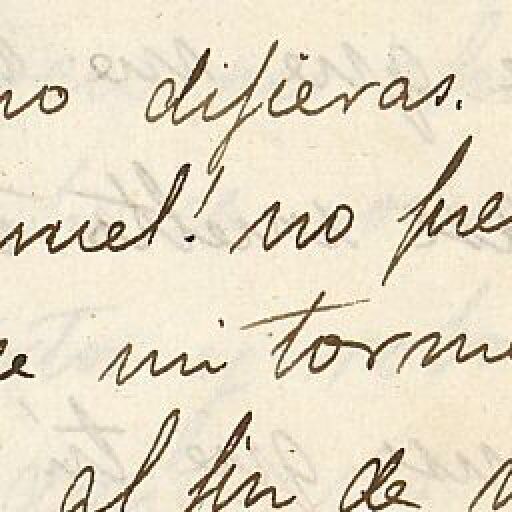 no difieras.
nuel! no pue
e mi torme
al fin de